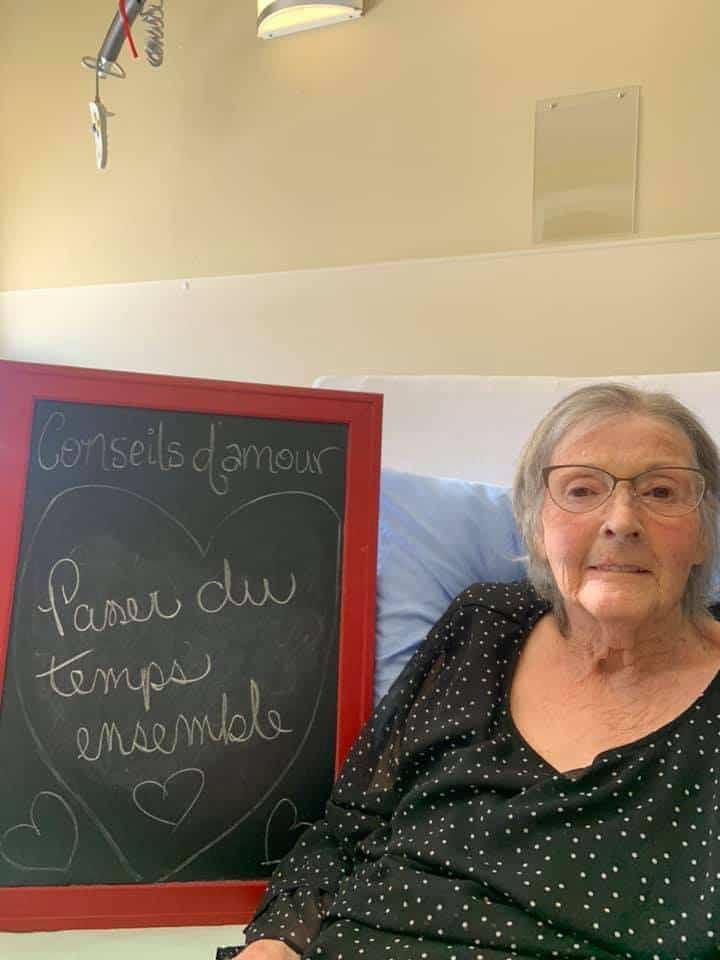 Conseils d'amour
Passer du
temps
ensemble